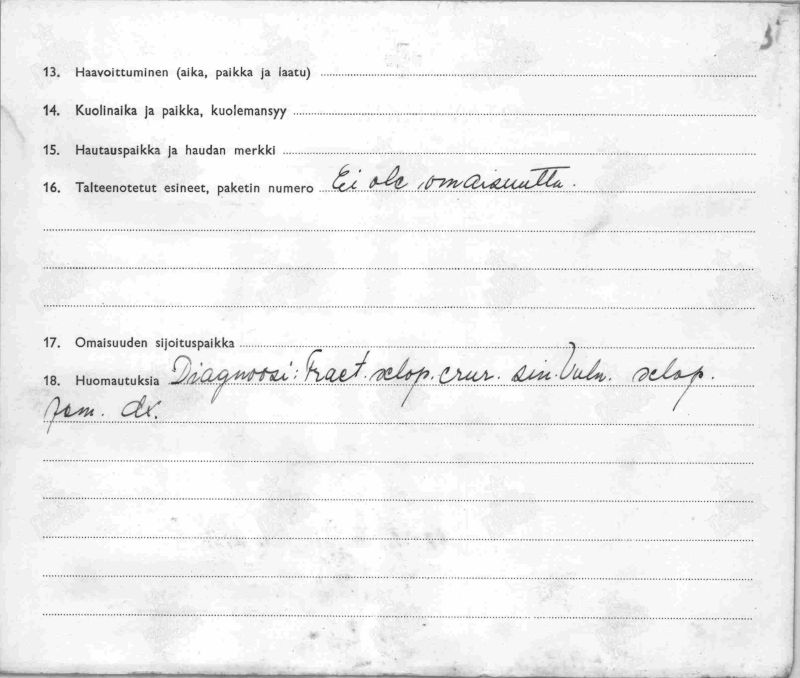 13. Haavoittuminen (aika, paikka ja laatu)
14. Kuolinaika ja paikka, kuolemansyy
15. Hautauspaikka ja haudan merkki
16. Talteenotetut esineet, paketin numero Ei ole omaisuutta.
17. Omaisuuden sijoituspaikka
18. Huomautuksia Diagnoosi: Fract. sclop. crur. sin. Vuln. sclop.
fem. dx.